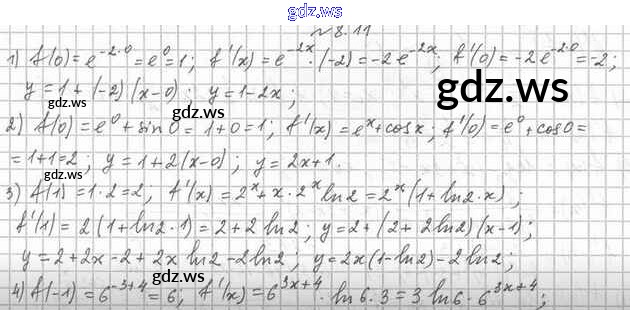 gdz.ws
№ 8.11
1) f(0) = e^{-2·0} = e^0 = 1; f'(x) = e^{-2x}·(-2) = -2e^{-2x}; f'(0) = -2e^{-2·0} = -2;
y = 1 + (-2)(x-0); y = 1-2x;
gdz.ws
gdz.ws
2) f(0) = e^0 + sin 0 = 1+0 = 1; f'(x) = e^x + cos x; f'(0) = e^0 + cos 0 =
= 1+1 = 2; y = 1+2(x-0); y = 2x+1.
3) f(1) = 1·2 = 2, f'(x) = 2^x + x·2^x ln2 = 2^x(1+ln2·x);
gdz.ws
f'(1) = 2(1+ln2·1) = 2+2ln2; y = 2+(2+2ln2)(x-1);
y = 2+2x-2+2x ln2-2ln2; y = 2x(1-ln2)-2ln2;
gdz.ws
gdz.ws
4) f(-1) = 6^{-3+4} = 6; f'(x) = 6^{3x+4}·ln6·3 = 3 ln6·6^{3x+4};